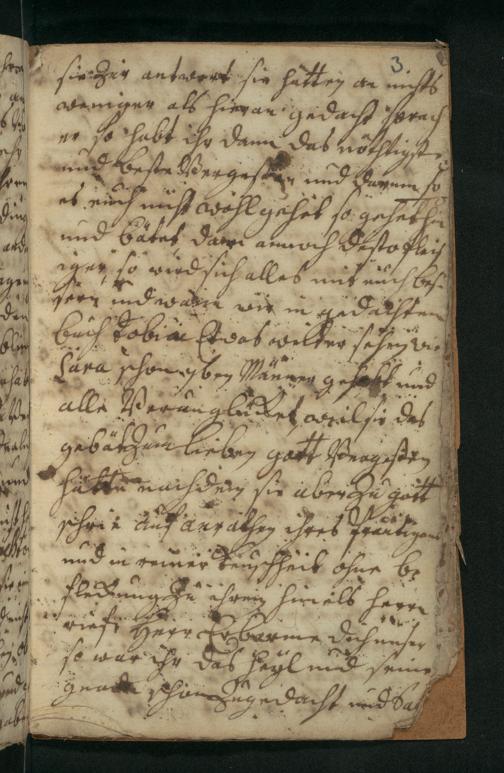 3
sie zur antwort sie hätten an nichts
weniger als hieran gedacht sprach
er so habt ihr dann das nöthigste
und beste Vergessen und darum so
es euch nicht wohl gehet so gehet hin
und bätet dann annoch desto fleis
iger so wird sich alles mit euch beß
ern und wann wir in gedachten
buch Tobiæ Etwas weiter sehen wie
Sara schon 7ben Männer gehabt und
alle Verunglücket, weil sie das
gebät zum lieben gott Vergessen
hätte nachdem sie aber zu gott
schrie auf anrathen ihres Bräutigams
und in reiner keuschheit ohne be
fleckung zu ihrem himels herrn
rieff Herr Erbarme dich unser
so war ihr das heyl und seine
gnade schon zugedacht und